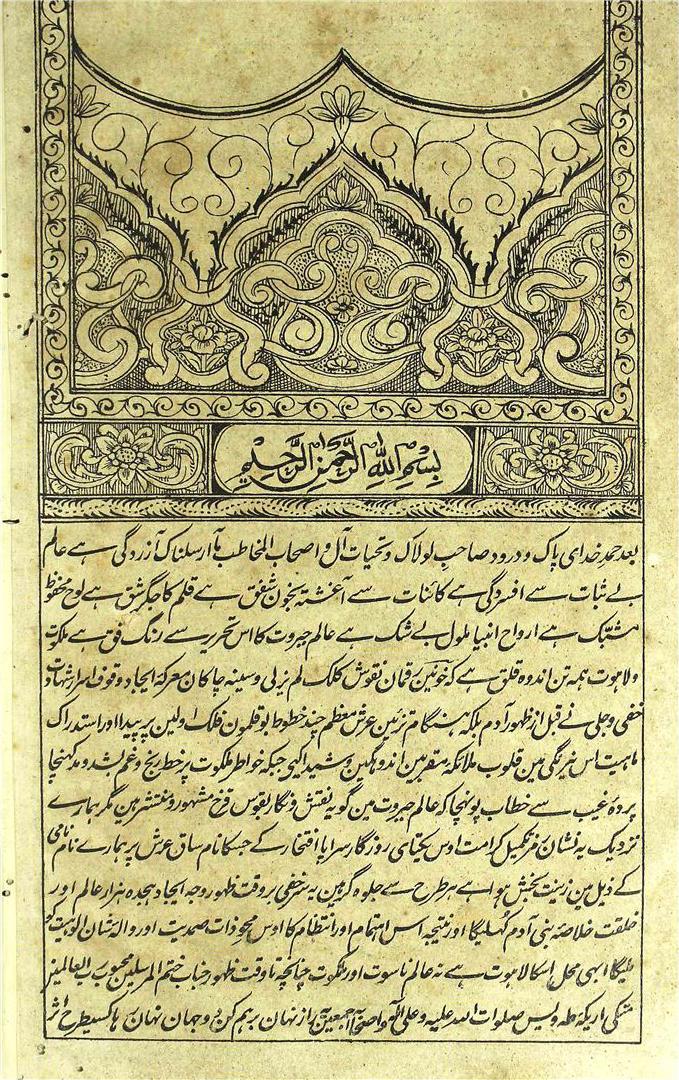 بسم الله الرحمن الرحيم
بعد حمد خدای پاک و درود صاحب لولاک و تحیات آل و اصحاب المخاطب بما ارسلناک آزردگی ہے عالم
بے ثبات سے افسردگی ہے کائنات سے آغشتہ بخون شفق ہے قلم کا جگر شق ہے لوح محفوظ
مشبک ہے ارواح انبیا ملول بے شک ہے عالم جبروت کا اس تحریر سے رنگ فق ہے ملکوت
و لاہوت ہمہ تن اندوہ قلق ہے کہ خونین رقمان نقوش کلک لم یزلی و سینہ چاکان معرکۂ ایجاد وقوف اسرار شہادت
خفی و جلی نے قبل از ظہور آدم بلکہ ہنگام تزئین عرش معظم چند خطوط بوقلمون فلک اولین پر پیدا اور استدراک
ماہیت اس نیرنگی مین قلوب ملائکہ مقربین اندوہگین و شیدا کیی جبکہ خواطر ملکوت پہ خط رنج و غم الشد و مد کھنچا
پردۂ غیب سے خطاب پونہچا کہ عالم جبروت مین گو یہ نقش و نگار بقوس قزح مشہور و منتشر ہین مگر ہمارے
نزدیک یہ نشان رمز تکمیل کرامت اوس یکتای روزگار سراپا افتخار کے جسکا نام ساق عرش پر ہمارے نام نامی
کے ذیل مین زینت بخش ہوا ہے ہر طرح سے جلوہ گر ہین یہ سر مخفی بر وقت ظہور وجہ ایجاد ہجدہ ہزار عالم اور
خلقت خلاصۂ بنی آدم کھلیگا اور نتیجہ اس اہتمام اور انتظام کا اوس محو ذات صمدیت اور والۂ شان الوہیت کو
ملیگا ابھی محل اسکا لاہوت ہے نہ عالم ناسوت اور ملکوت چنانچہ تا وقت ظہور جناب ختم المرسلین محبوب رب العالمین
متکی اریکۂ طہ و یس صلوات اللہ علیہ و علی آلہ و اصحابہ اجمعین یہ راز نہان بر ہم کن دو جہان نہان رہا کسیطرح اثر